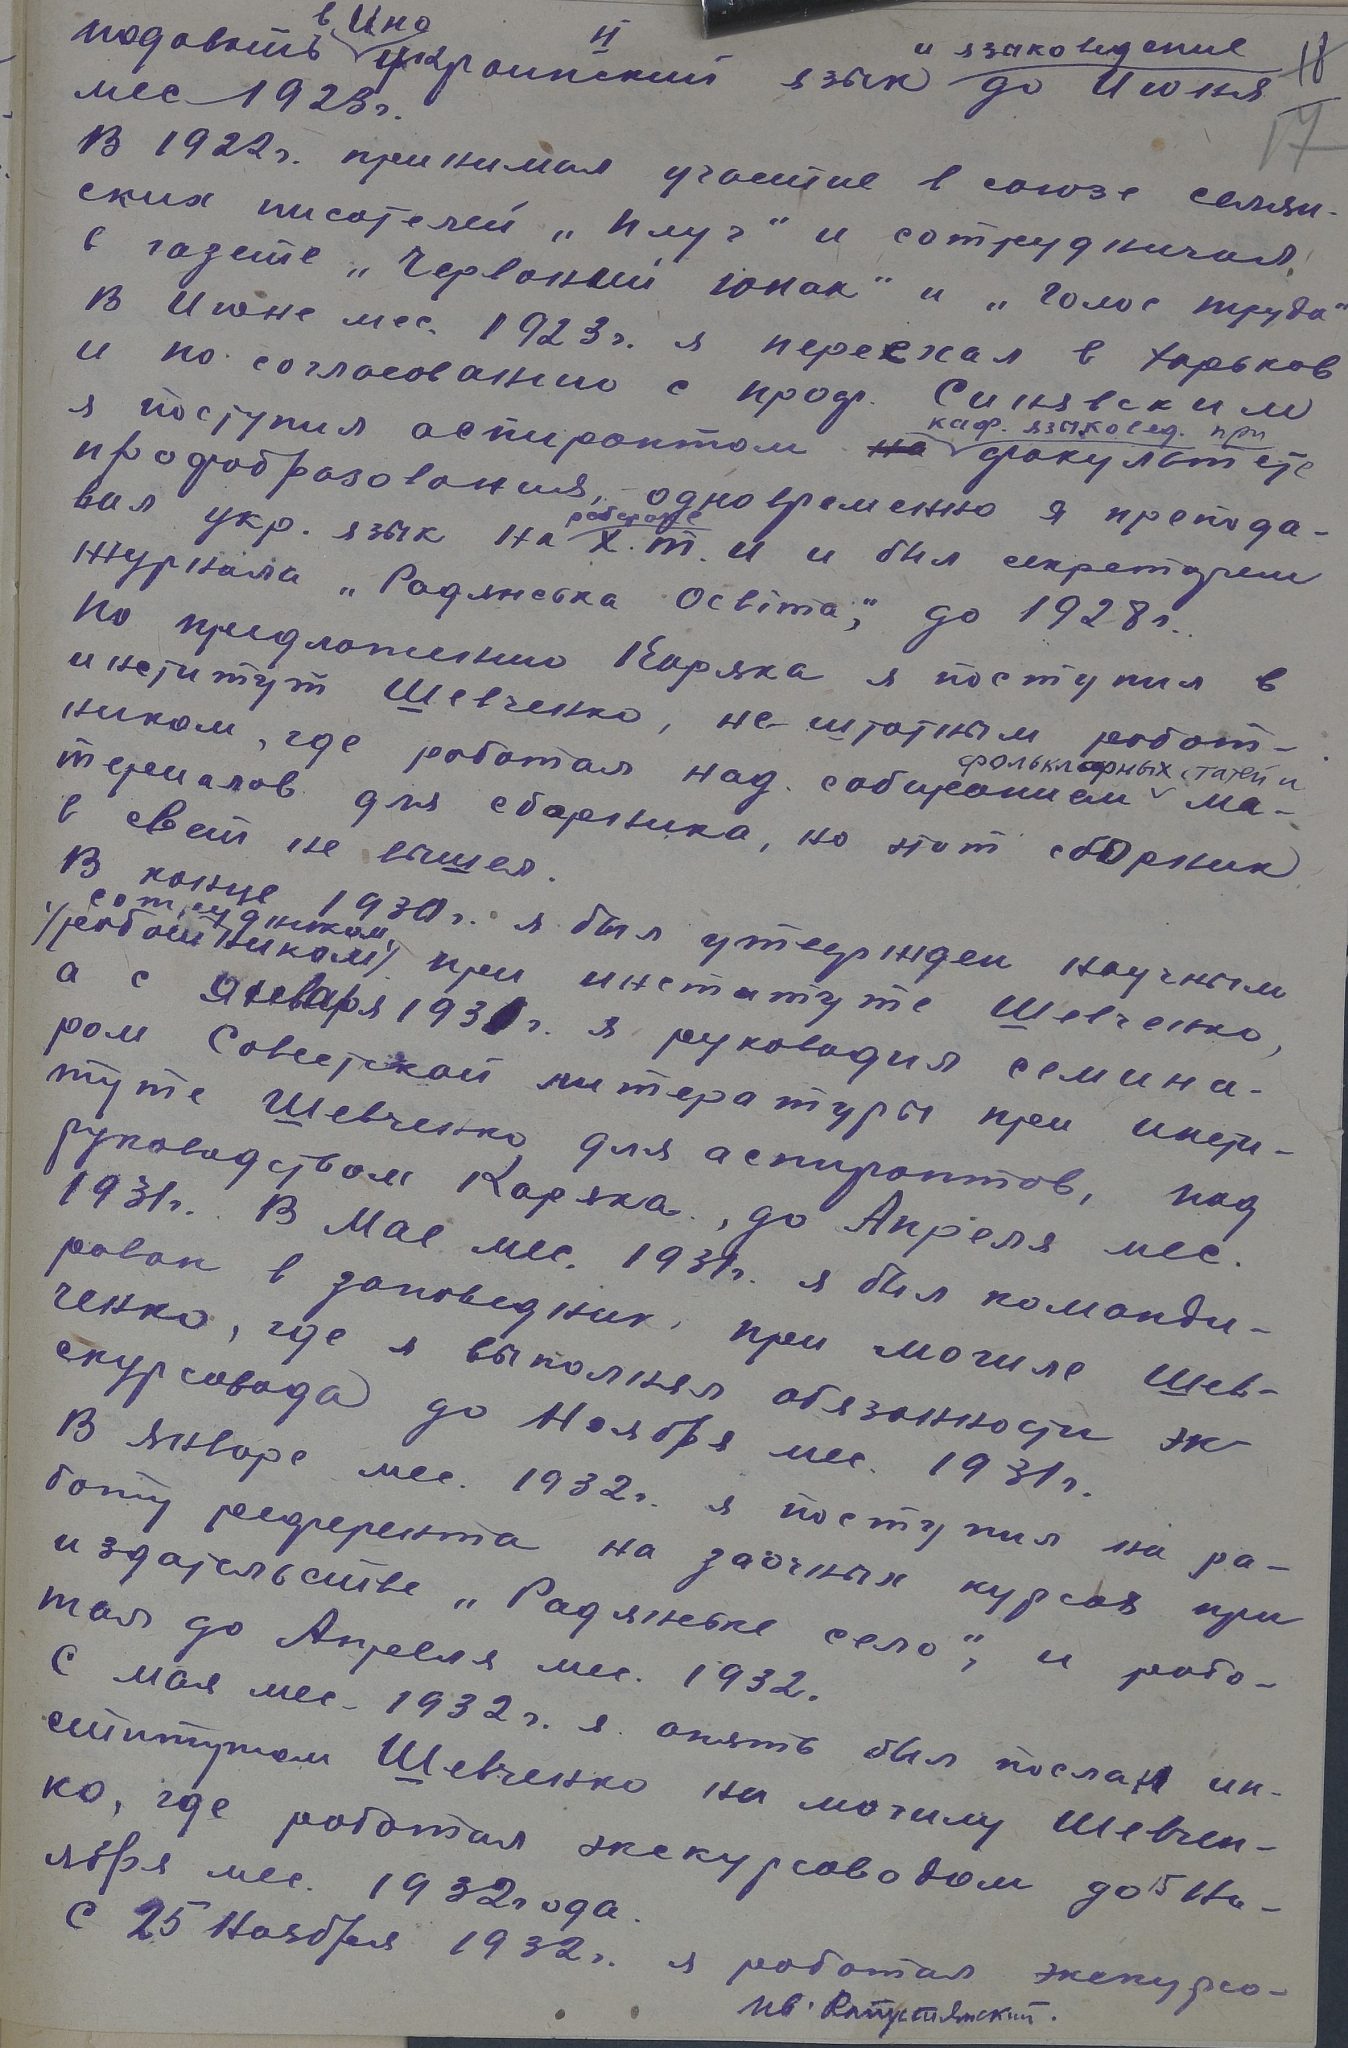 подавать в Ино украинский язык и языковедение до Июня
мес 1923г.
В 1922г. принимал участие в союзе селян-
ских писателей „Плуг" и сотрудничал
в газете „Червоний юнак" и „Голос труда"
В Июне мес. 1923г. я переехал в Харьков
и по согласованию с проф. Синявским
я поступил аспирантом на каф. языковед. при факультете
профобразования, одновременно я препода-
вал укр. язык на рабфаке Х.Т.И и был секретарем
журнала „Радянська Освіта", до 1928г.
По предложению Коряка я поступил в
институт Шевченко, не-штатным работ-
ником, где работал над собиранием фольклорных статей и ма-
териалов для сборника, но этот сборник
в свет не вышел.
В конце 1930г. я был утвержден научным
сотрудником /работником/ при институте Шевченко,
а с Января 1931г. я руководил семина-
ром Советской литературы при инсти-
туте Шевченко для аспирантов, под
руководством Коряка, до Апреля мес.
1931г. В Мае мес. 1931г. я был команди-
рован в заповедник, при могиле Шев-
ченко, где я выполнял обязанности эк-
скурсовода до Ноября мес. 1931г.
В Январе мес. 1932г. я поступил на ра-
боту референта на заочных курсах при
издательстве „Радянське село", и рабо-
тал до Апреля мес. 1932.
С мая мес. 1932г. я опять был послан ин-
ститутом Шевченко на могилу Шевчен-
ко, где работал экскурсоводом до 15 Но-
ября мес. 1932года.
С 25 Ноября 1932г. я работал экскурсо-
Ив. Капустянский.
18
17